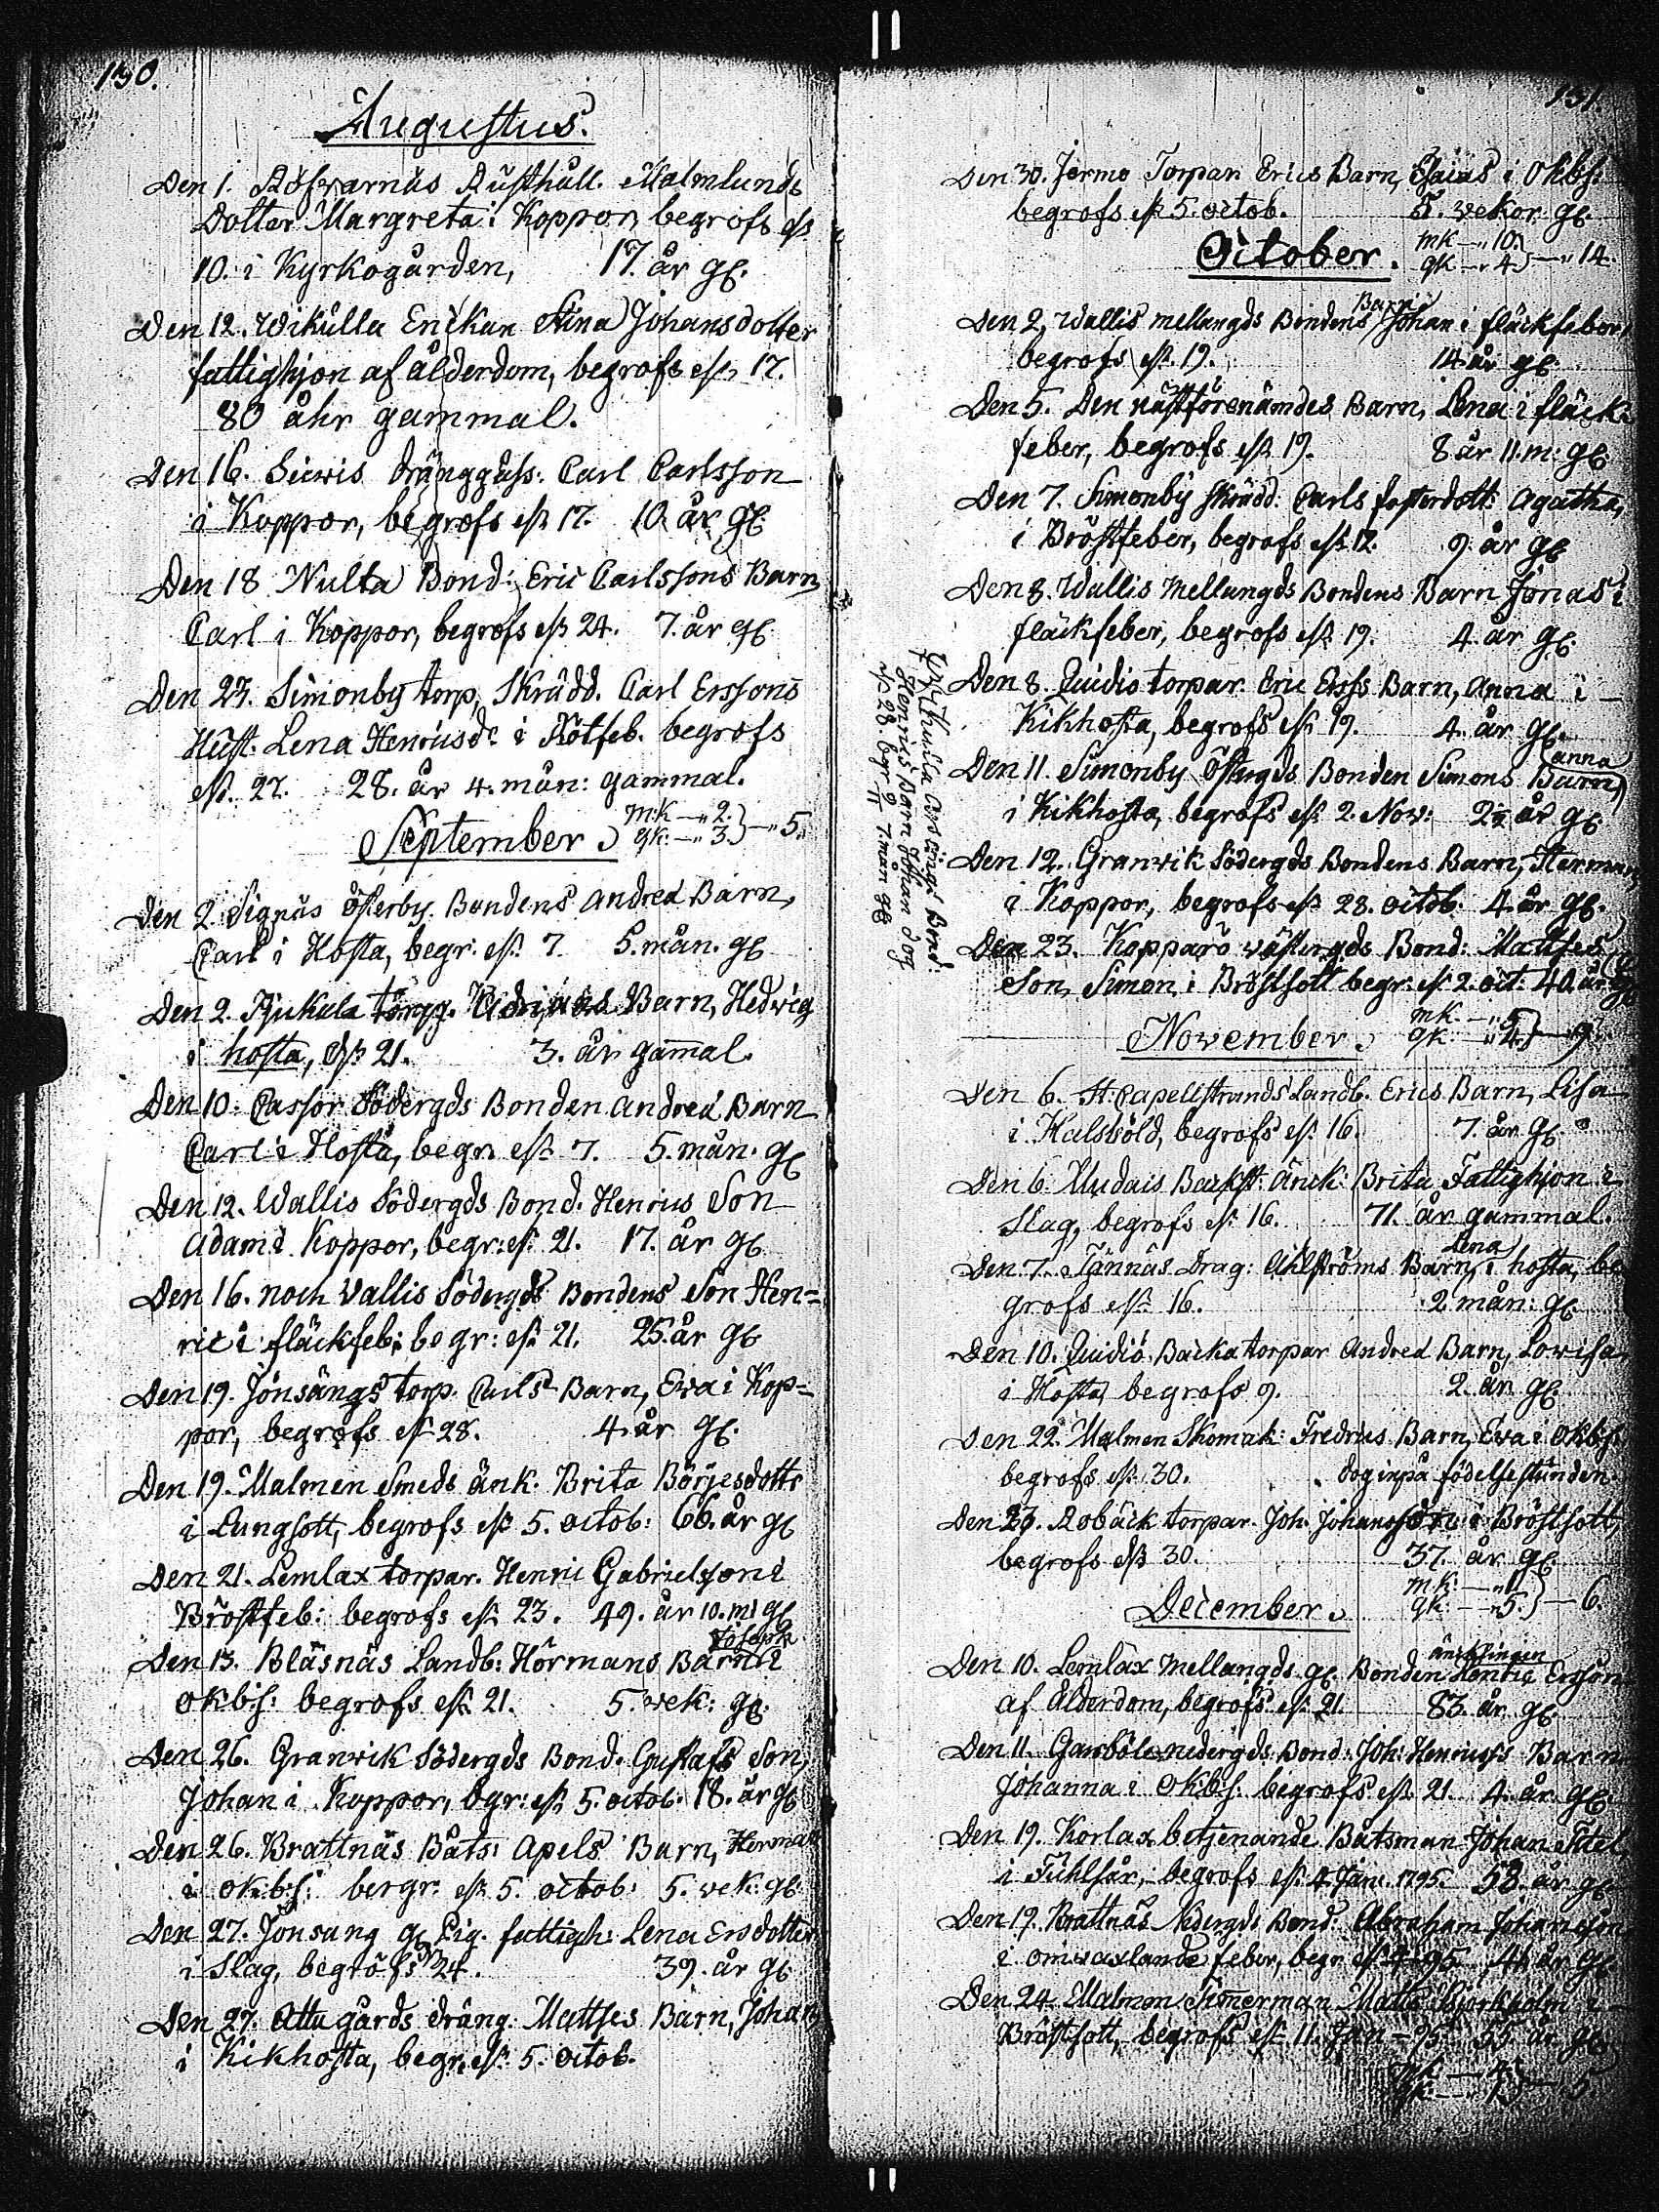 130.
Augustus.
Den 1. Röfvarnäs Rusthåll. Malmlunds
Dotter Margreta i Koppor, begrofs esk
10. i Kyrkogården, 17. år gl.
Den 12. Wikulla Enckan Stina Johansdotter
fattighjon af ålderdom, begrofs esk 17.
80 åhr gammal.
Den 16. Siewis Dränggåss: Carl Carlsson
i Koppor, begrofs esk 17. 10. år gl.
Den 18 Nulta Bond: Eric Carlssons Barn
Carl i Koppor, begrofs esk 24. 7. år gl.
Den 23. Simonby torp, Skrädd. Carl Erssons
Hust. Lena Henricsdr i Rötfeb. begrofs
esk. 27. 28. år 4. mån: gammal.
September. mk — 2. qk. — 3. } — 5.
Den 2. Signäs Österby. Bondens Andreæ Barn,
Carl i Hosta, begr: esk 7 5. mån. gl
Den 2. torpp. Barn, Hedvig
i hosta, esk 21. 3. år gam̄al.
Den 10. Cassor Södergds Bonden Andreæ Barn
Carl i Hosta, begr. esk 7. 5. mån. gl
Den 12. Wallis Södergds Bond. Henrics Son
Adam i Koppor, begr: esk 21. 17. år gl
Den 16. noch Vallis Södergds Bondens Son Hen=
ric i fläckfeb: begr: esk 21. 25. år gl
Den 19. Jönsängs torp. Carls Barn, Ewa i Kop=
por, begrofs esk 28. 4. år gl.
Den 19. Malmen Smeds änk. Brita Börjesdottr
i Lungsott, begrofs esk 5. octob: 66. år gl
Den 21. Lemlax torpar. Henric Gabrielson i
Bröstfeb: begrofs esk 23. 49. år 10. m: gl
Den 13. Bläsnäs Landb: Hörmans Barn Joseph i
okb:s: begrofs esk 21. 5. wek: gl.
Den 26. Granvik Södergds Bond. Gustafs Son,
Johan i Koppor, bgr: esk 5. octob. 18. år gl
Den 26. Brattnäs Båts: Apels Barn, Herman
i okb:s: bergr. esk 5. octob: 5. vek: gl:
Den 27. Jönsang gl Pig. fattigh: Lena Ersdotter
i Slag, begrofs 24. 39. år gl
Den 27. Attu gårds dräng. Mattses Barn, Johan
i Kikhosta, begr. esk 5. octob.
131.
Den 30. Jermo Torpar Erics Barn, Esaias i Okb:s:
begrofs esk 5. octob. 5. vekor gl.
October. mk — 10. qk — 4. } — 14.
Den 2. Wallis mellangds Bondens Barn Johan i fläckfeber,
begrofs esk 19. 14 år gl.
Den 5. Den nästförenämdes Barn, Lena i fläck=
feber, begrofs esk 19. 8 år 11. m: gl.
Den 7. Simonby skrädd: Carls fosterdott: Agatha,
i Bröstfeber, begrofs esk 12. 9. år gl
Den 8. Wallis Mellangds Bondens Barn Jonas i
fläckfeber, begrofs esk 19. 4. år gl.
Den 8. Quidio torpar. Eric Erss Barn, Anna i
Kikhosta, begrofs esk 19. 4. år gl.
Den 11. Simonby Östngds Bonden Simons Barn anna
i Kikhosta, begrofs esk 2. Nov: 2½ år gl
Den 12. Granvik Södergds Bondens Barn, Herman,
i Koppor, begrofs esk 28. octob. 4. år gl.
Den 23. Kopparö västergds Bond: Mattses
Son, Simon, i Bröstsott begr: esk 2. oct: 40. år
Henrics Barn Johan dog
28. begr 9 7. mån gl
November. mk — 5 qk: — 4. } — 9
Den 6. St: Capellstrands Landb. Erics Barn, Lisa
i Halsböld, begrofs esk 16. 7. år gl.
Den 6. Mudais Backst. änck: Brita Fattighjon i
Slag, begrofs esk 16. 71. år gammal.
Den 7. Tännäs Drag: Ahlströms Barn Lena i hosta, be
grofs esk 16. 2 mån: gl.
Den 10. Quidiö Backa torpar Andreæ Barn, Lovisa
i Hosta begrofs 9. 2. år gl
Den 22. Malmen Skomak: Fredrics Barn, Ewa i okb:s:
begrofs esk 30. dog inpå födelsestunden.
Den 23. Robäck torpar. Joh. Johansson i Bröstsott,
begrofs esk 30. 37. år gl.
December. mk — 1 qk: — 5. } — 6.
Den 10. Lemlax Mellangds gl. Bonden änklingen Henric Ersson
af Ålderdom, begrofs esk 21. 83. år gl.
Den 11. Garsböle nedergds Bond: Joh: Henricss Barn
Johanna i okb:s: begrofs esk 21. 4. år gl.
Den 19. Korlax betjenande Båtsman Johan
i begrofs esk 4. Jan. 1795. 53. år gl
Den 19. Brattnäs Nedergds Bond: Abraham Johansson
i omvaxlande feber, begr. esk 4 95 år gl
Den 24. Malmen Tim̄erman Matts Björkholm i
Bröstsott, begrofs esk 11. Jan — 95. 55. år gl
mk — 4. qk — 1. } — 5